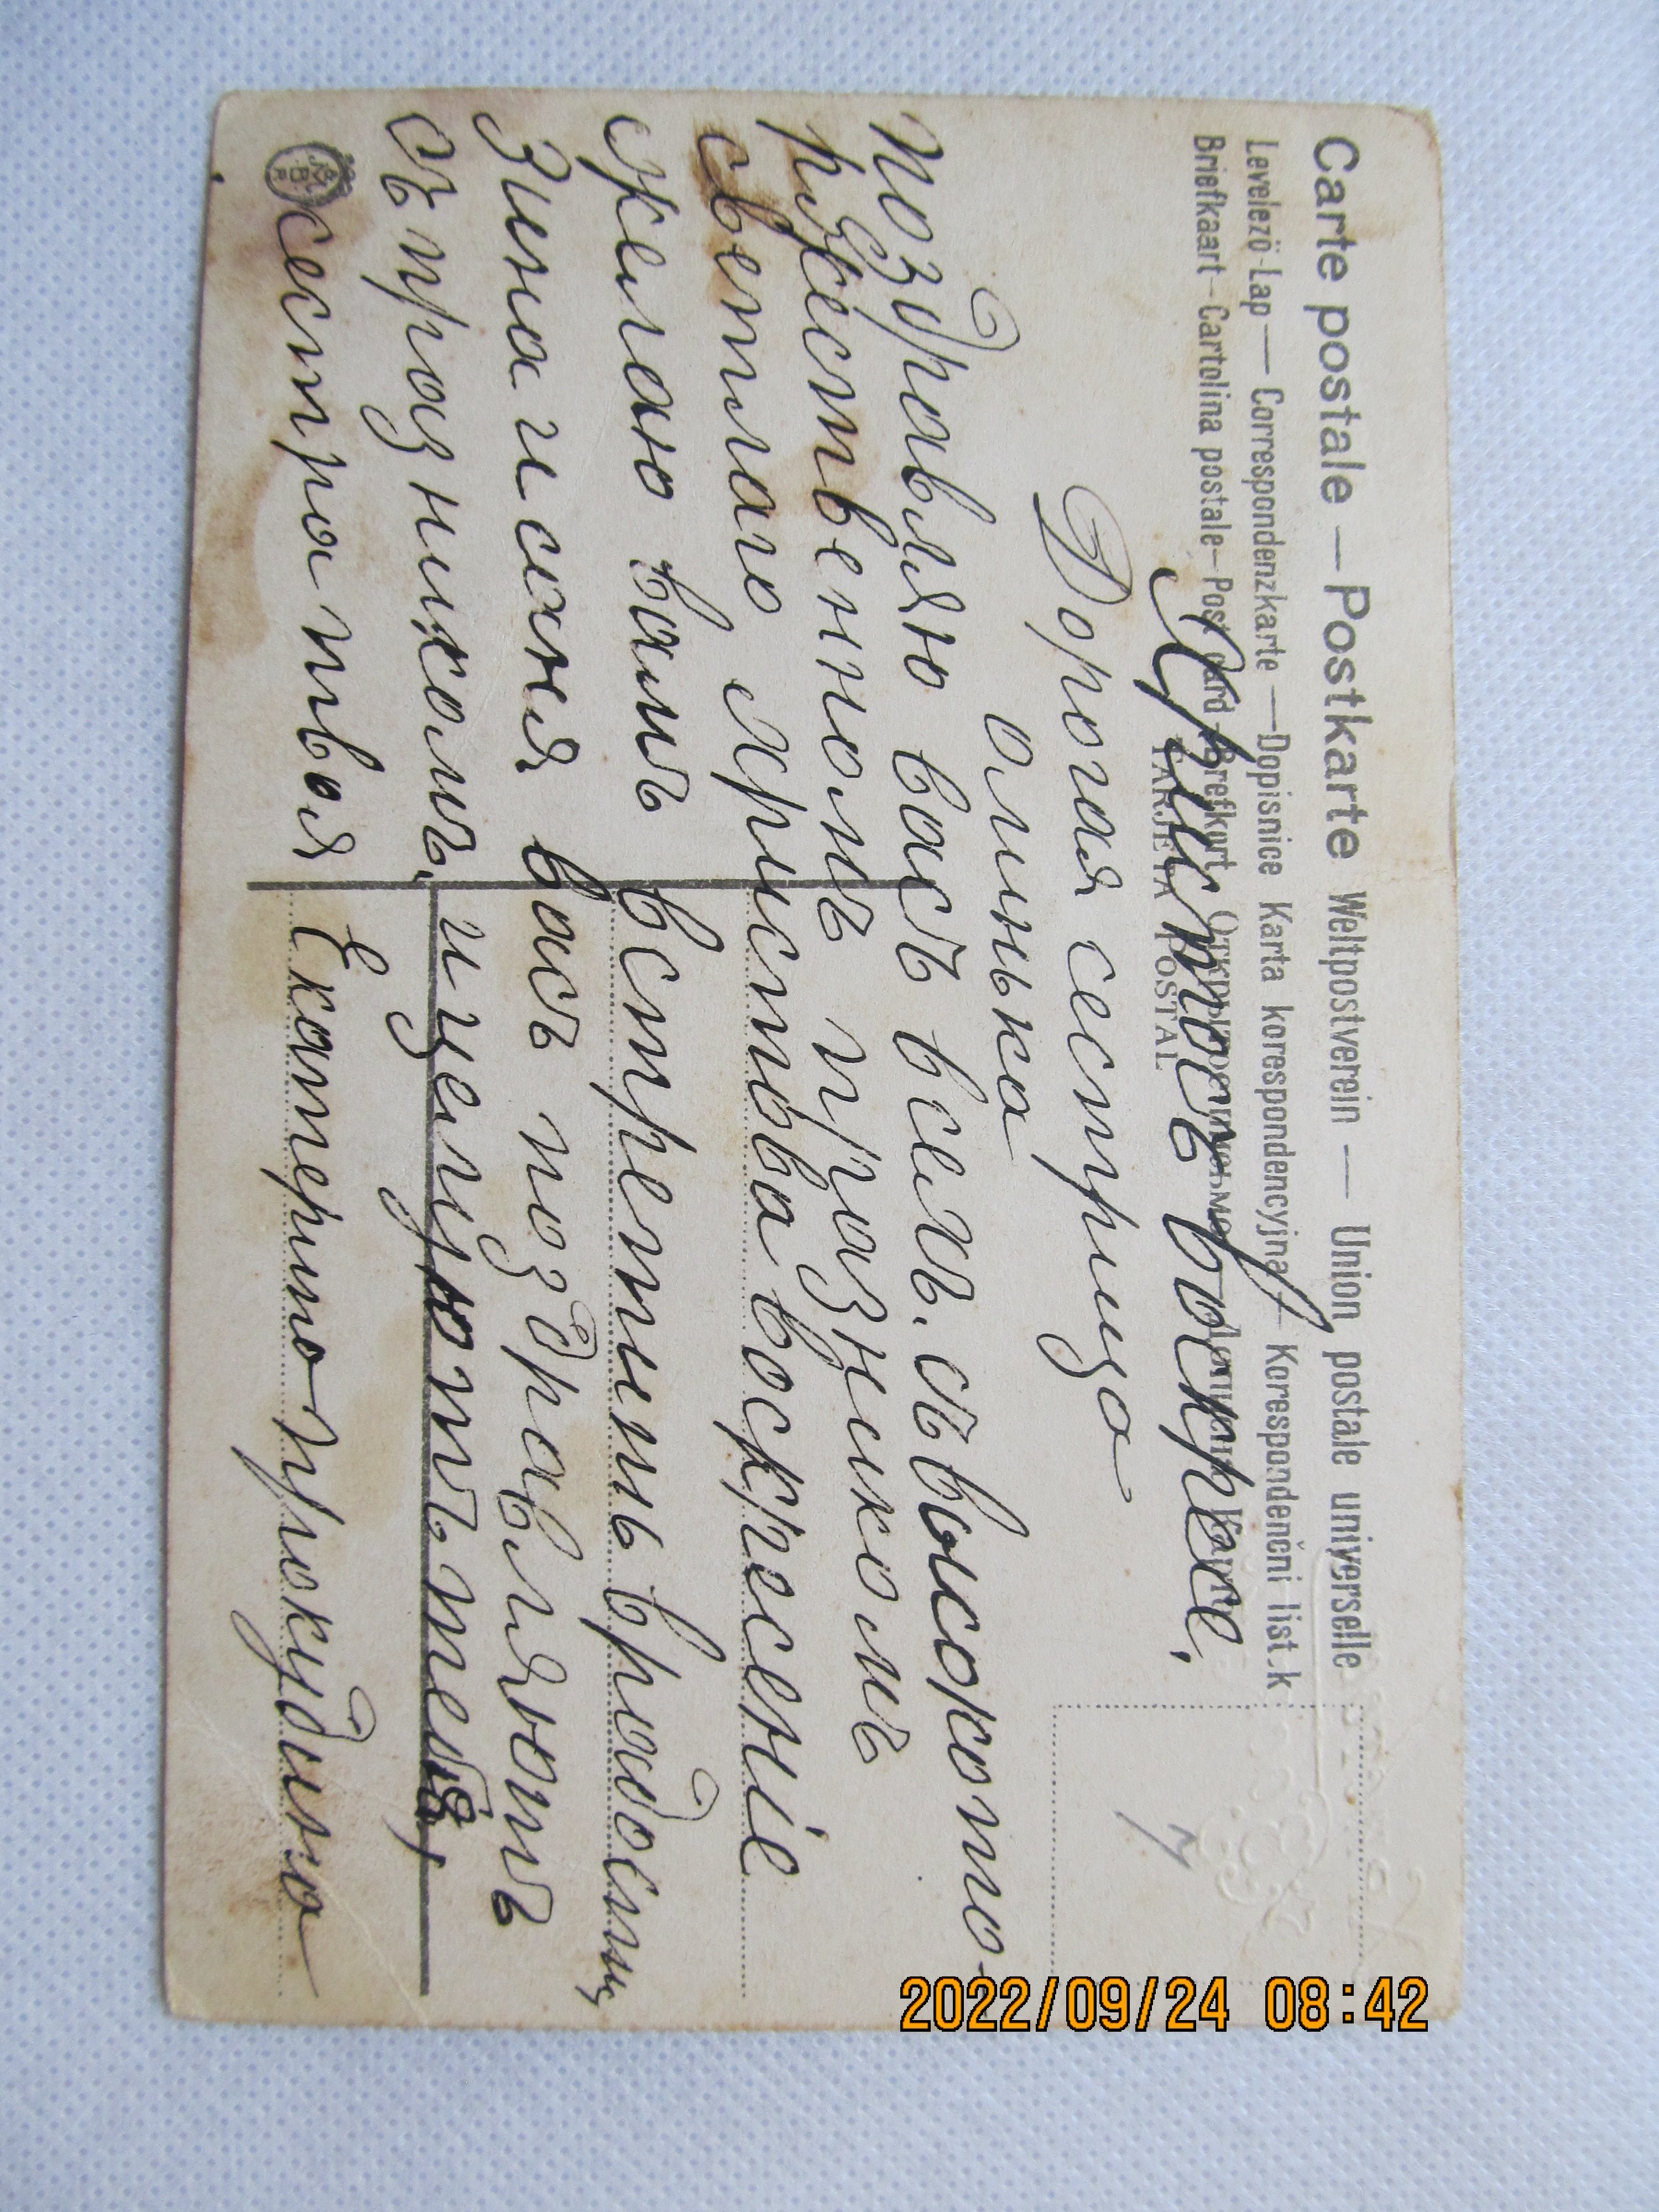 Carte postale — Postkarte Weltpostverein — Union postale universelle
Levelezö-Lap — Correspondenzkarte — Dopisnice Karta korespondencyjna — Korespondenční list.k
Briefkaart — Cartolina postale — Post card — Brefkort
TARJETA POSTAL
Христосъ воскресе.
Дорогая сестрица
олинька
поздравлю васъ всемъ. съ высокото-
ржественномъ праздникомъ
светлаго христова воскресеніе
желаю вамъ встретить врадосты
Зина и саня васъ поздравляютъ
съ праздникомъ, и целуютъ тебя,
сестра твоя Екатерина прокудина
2022/09/24 08:42